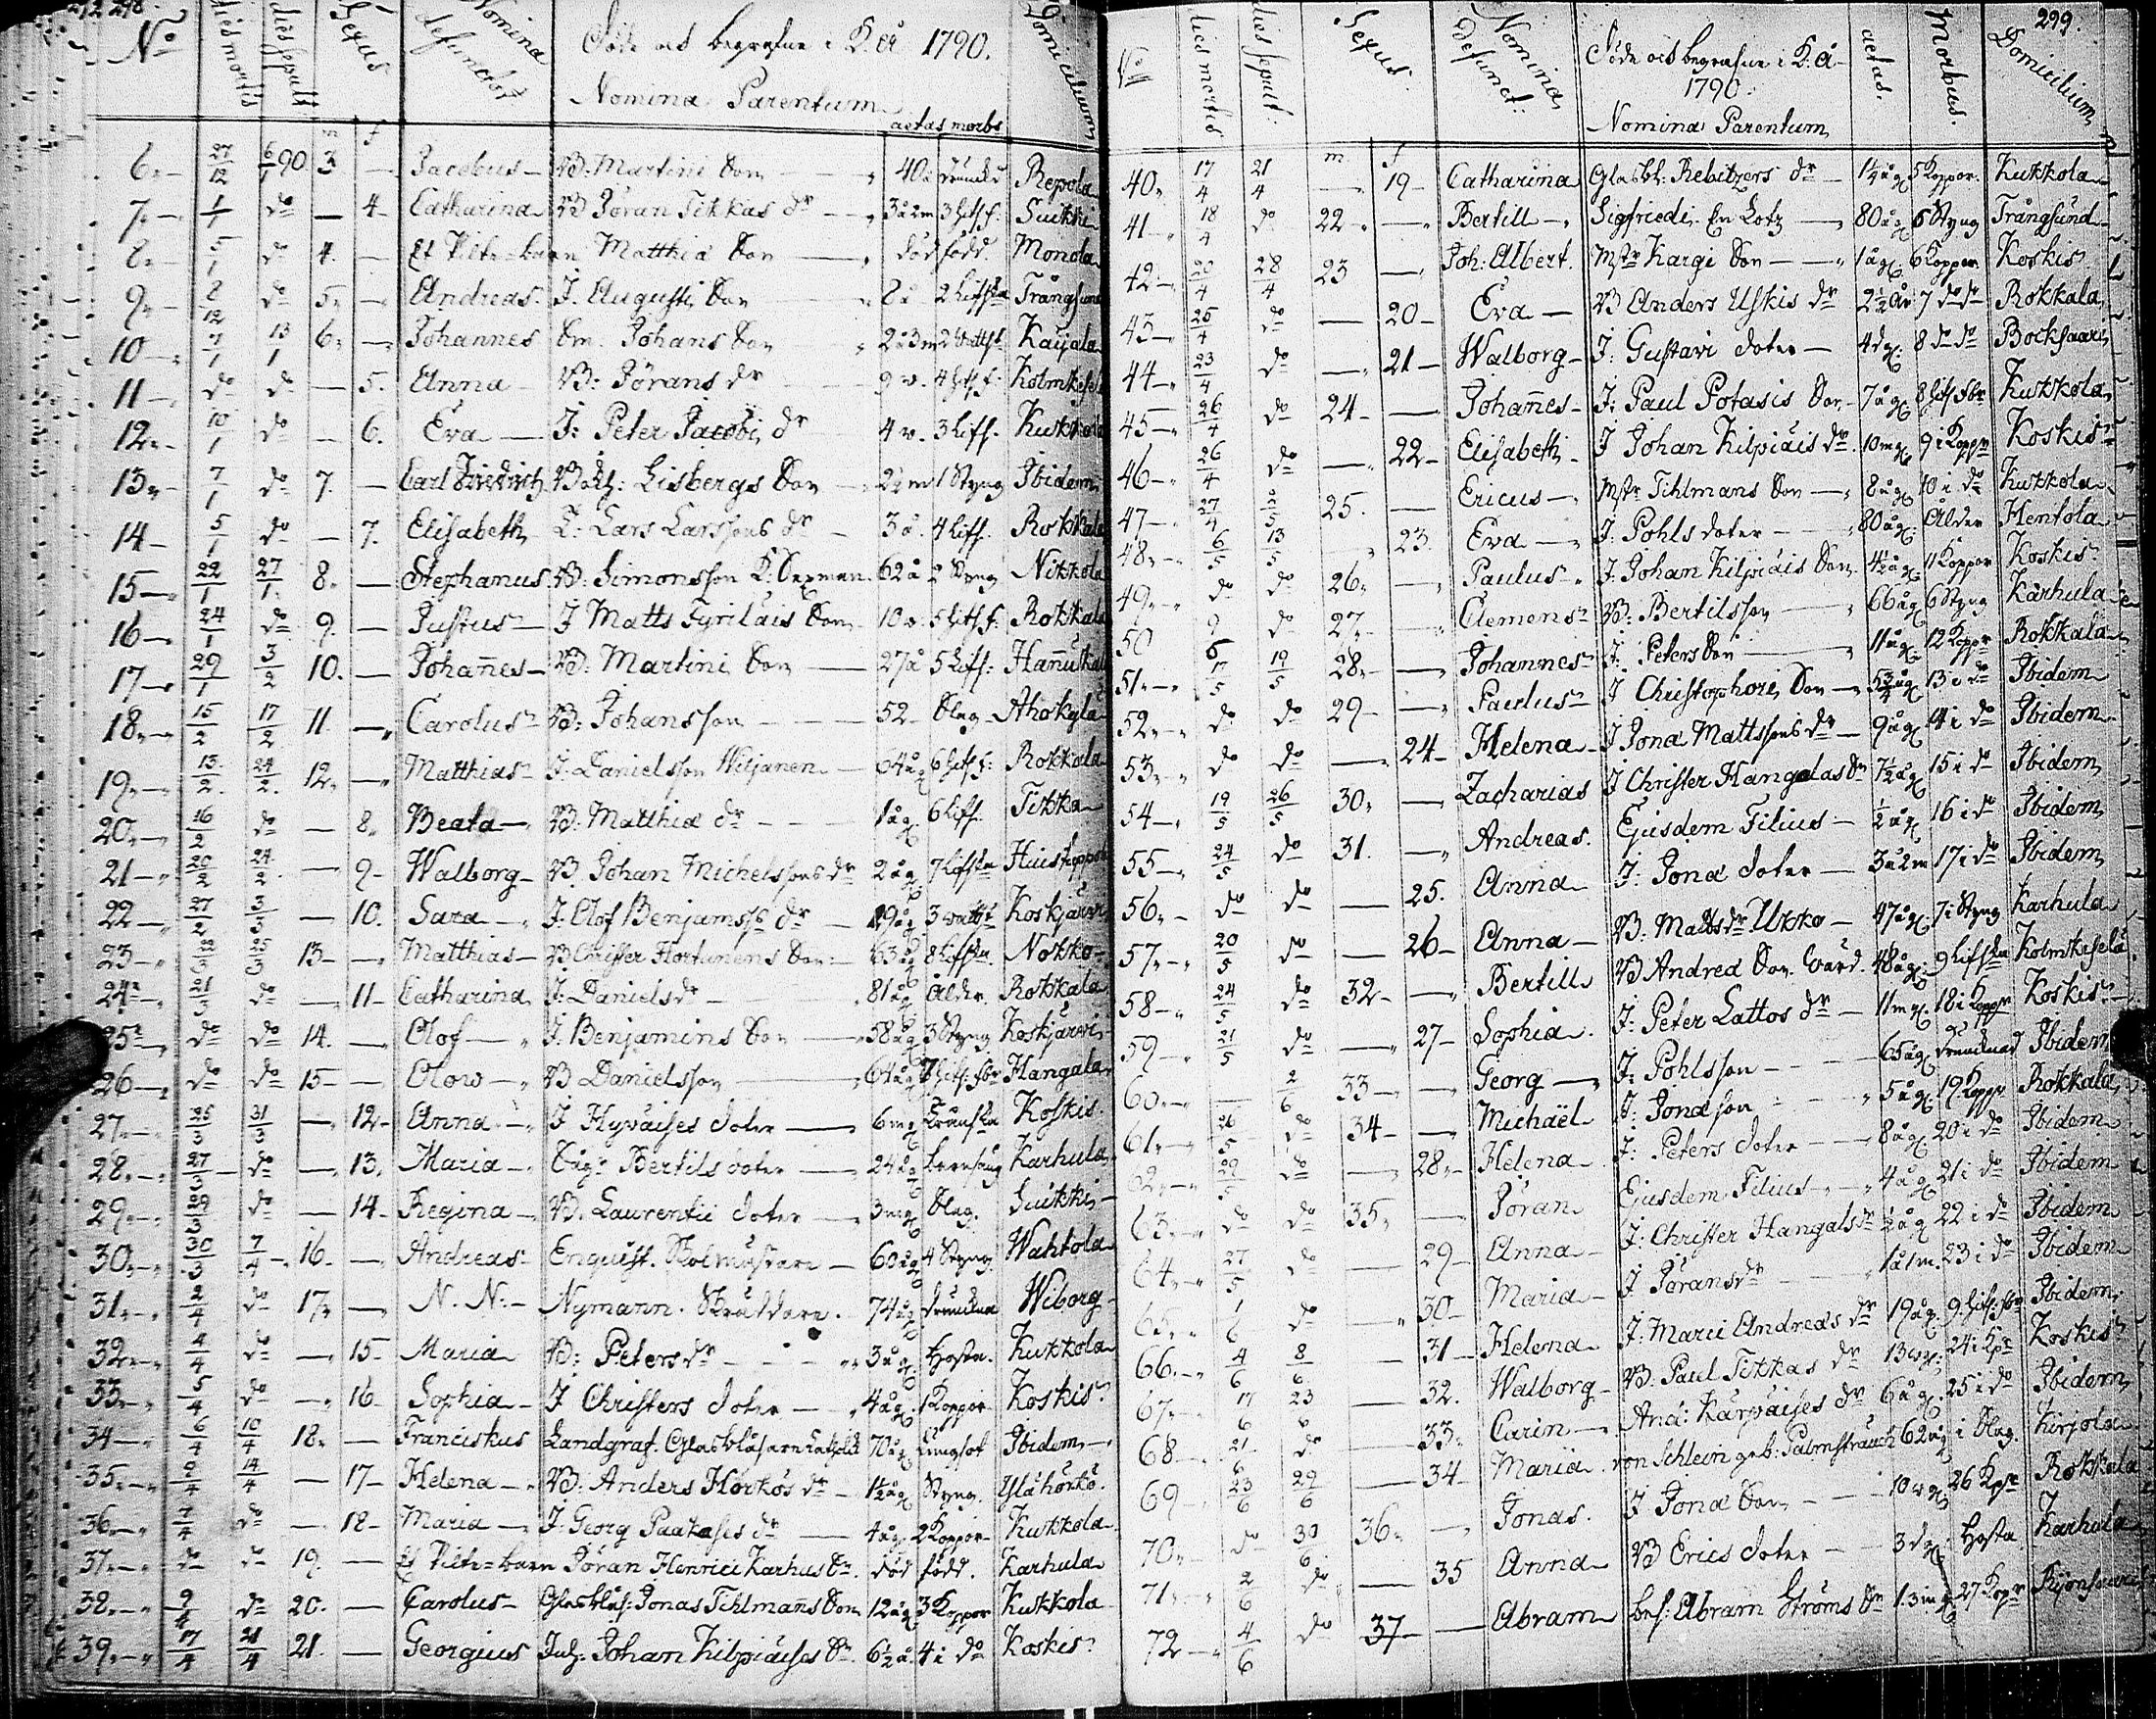 298.
No dies mortis dies sepult Sexus Nomina defunctor Döde och begrafne i K. år 1790. Nomina Parentum aetas morbs Domicilium
m f
6 27/12 6/1 90 3 — Jacobus B. Martini Son 40å Repola
7 1/1 do — 4 Catharina B Jöran Tikkas dr 3å2m 3 Suikki
8 5/1 do 4 — Ett Piltebarn Matthiæ Son död född. Monola
9 do 5 — Andreas J. Augusti Son 8å 2 Trångsund
10 7/1 13/1 6 — Johannes Johans Son 2å3m 2 Kaijala
11 do do — 5. Anna B: Jörans dr 9v. 4
12 10/1 do — 6. Eva J: Peter Jacobi dr 4v. 3 Kukkola
13 7/1 do 7. — Carl Friedrich Lisbergs Son 1 Styng Ibidem
14 5/1 do — 7. Elisabeth Lars Larssons dr 3å. 4 Rokkala
15 22/1 27/1 8 — Stephanus B. Simonsson 62å 2 Styng Nikkola
16 24/1 do 9. — Justus J Matts Tyriläis Son 10v. 5 Rokkala
17 29/1 3/2 10. — Johannes B. Martini Son 27å 5
18 15/2 17/2 11. — Carolus B: Johansson 52 Slag Ahokylä
19 13/2 24/2 12 — Matthias J: Danielsson Wiljanen 64åg 6 Rokkala
20 16/2 do — 8. Beata B: Matthiæ dr 1åg 6 Tikka
21 20/2 24/2 — 9 Walborg B Johan Michelssons dr 2åg 7
22 27/2 3/3 — 10. Sara J. Olof Benjamss dr 3 Koskjärvi
23 22/3 25/3 13 — Matthias B Christer Hortunens Son 63åg 8 Nokko
24 21/3 do — 11 Catharina J: Daniels dr 81åg Ålder. Rokkala
25 do do 14. — Olof J. Benjamins Son 58åg 3 Styng Koskjärvi
26 do do 15 — Olow B Danielsson 64åg 7 Hangala
27 25/3 31/3 — 12 Anna J Hyväises doter 6mg Koskis
28 27/3 do — 13 Maria Bertils doter 24åg barnsäng Karhula
29 29/3 do — 14 Regina B. Laurentii doter 3mg Slag. Suikki
30 30/3 7/4 16. — Andreas Enquist. 60åg 4 Styng. Wahtola
31 2/4 do 17 — N. N. Nymann. Skräddare. 74åg Wiborg
32 4/4 do — 15 Maria B: Peters dr 3åg Hosta. Kukkola
33 5/4 do — 16 Sophia J Christers doter 4åg 1 Koppor Koskis
34 6/4 10/4 18 — Franciskus Landgraf. Glasblåsare 70åg Lungsot Ibidem
35 9/4 14/4 — 17 Helena B. Anders Hörkös dr 1½åg Styng.
36 7/4 do — 18 Maria J. Georg Paakases dr 4åg. 2 Koppor Kukkola
37 do do 19. — Ett Piltebarn Jöran Henrici Karhus Sn. död född. Karhula
38 9/4 do 20. — Carolus Glasblås: Jonas Tihlmans Son 12åg 3 Koppor Kukkola
39 17/4 21/4 21. — Georgius Inh: Johan Kilpiäises Sn 6½å 4 i do Koskis
299.
No dies mortis dies sepult: Sexus Nomina defunct: Döde och begrafne i K. år 1790. Nomina Parentum aetas. Morbus. Domicilium
m f
40 17/4 21/4 — 19 Catharina Glasbl: Rebitzers dr 1¼åg 5 Koppor. Kukkola
41 18/4 do 22 — Bertill Sigfriedi En Lotz 80åg 5 Styng Trångsund
42 20/4 28/4 23 — Joh: Albert. Mstr Hargi Son 1åg. 6 Koppor. Koskis
43 25/4 do — 20 Eva B Anders Uskis dr 2½år 7 do do Rokkala
44 23/4 do — 21 Walborg J: Gustavi doter 4dg. 8 do do Bocksaari
45 26/4 do 24 — Johannes J: Paul Potasis Son 7åg 8 Kukkola
46 26/4 do — 22 Elisabeth J Johan Kilpiäis dr. 10mg 9 i Koppor Koskis
47 27/4 2/5 25. — Ericus Mstr Tihlmans Son 8åg 10 i do Kukkola
48 6/5 13/5 — 23. Eva J: Pohls doter 80åg. Ålder Hentola
49 do do 26 — Paulus J. Johan Kilpiäis Son 4½åg 11 Koppor Koskis
50 9/5 do 27 — Clemens B: Bertilsson 66åg 6 Styng Karhula
51 17/5 19/5 28 — Johannes J: Peters Son 11åg 12 Koppr Rokkala
52 do do 29 — Paulus J Christophori Son 5¾åg 13 i do Ibidem
53 do do — 24 Helena J Jonæ Mattssons dr 9åg 14 i do Ibidem
54 19/5 26/5 30 — Zacharias J Christer Hangalas Sn 7½åg 15 i do Ibidem
55 24/5 do 31. — Andreas. Ejusdem Filius ½åg 16 i do Ibidem
56 do do — 25. Anna J: Jonæ doter 3å2m 17 i do Ibidem
57 20/5 do — 26 Anna B: Matts dr Ukko 47åg. 7 i Styng Karhula
58 24/5 do 32 — Bertill B Andreæ Son. 48åg. 9 Kolmikeselä
59 21/5 do — 27 Sophia. J: Peter Lattos dr 11mg. 18 i Koppr Koskis
60 — 2/6 33 — Georg J: Pohlsson 65åg drunknad Ibidem
61 26/5 do 34 — Michaël J: Jonason 5åg 19 Koppr Rokkala
62 29/5 do — 28 Helena J: Peters doter 8åg 20 i do Ibidem
63 do do 35 — Jöran Ejusdem Filius 4åg 21 i do Ibidem
64 27/5 do — 29 Anna J: Christer Hangals dr ½åg 22 i do Ibidem
65 1/6 do — 30 Maria J Jörans dr 1å1m. 23 i do Ibidem
66 4/6 8/6 — 31 Helena J: Marci Andreæ dr 19åg. 9 Ibidem
67 17/6 23/6 — 32. Walborg B: Paul Tikkas dr 13 24 i Kpr Koskis
68 21/6 do — 33 Carin And: Karpäises dr 6åg. 25 i do Ibidem
69 23/6 29/6 — 34 Maria. von Schlein geb: Palmstrauch 62åg i Slag. Kirjola
70 do 30/6 36 — Jonas. J Jonæ Son 10 26 Kpr Rokkala
71 2/6 do — 35 Anna B Erics doter 3dg Hosta Karhula
72 4/6 do 37 — Abram Abram Ströms Sn 27 Kopr